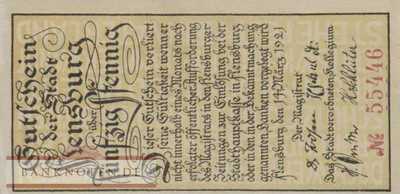 Gutschein
der Stadt
Flensburg
über
Fünfzig Pfennig
Dieser Gutschein verliert
seine Gültigkeit wenn er
nicht innerhalb eines Monats nach
erfolgter öffentlicher Aufforderung
des Magistrats in den Flensburger
Zeitungen zur Einlösung bei der
Stadthauptkasse in Flensburg
oder in den in der Bekanntmachung
genannten Banken vorgelegt wird
Flensburg den 11 März 1921
Der Magistrat
Das Stadtverordneten Kollegium
№ 55446
BANKNOTEN.DE